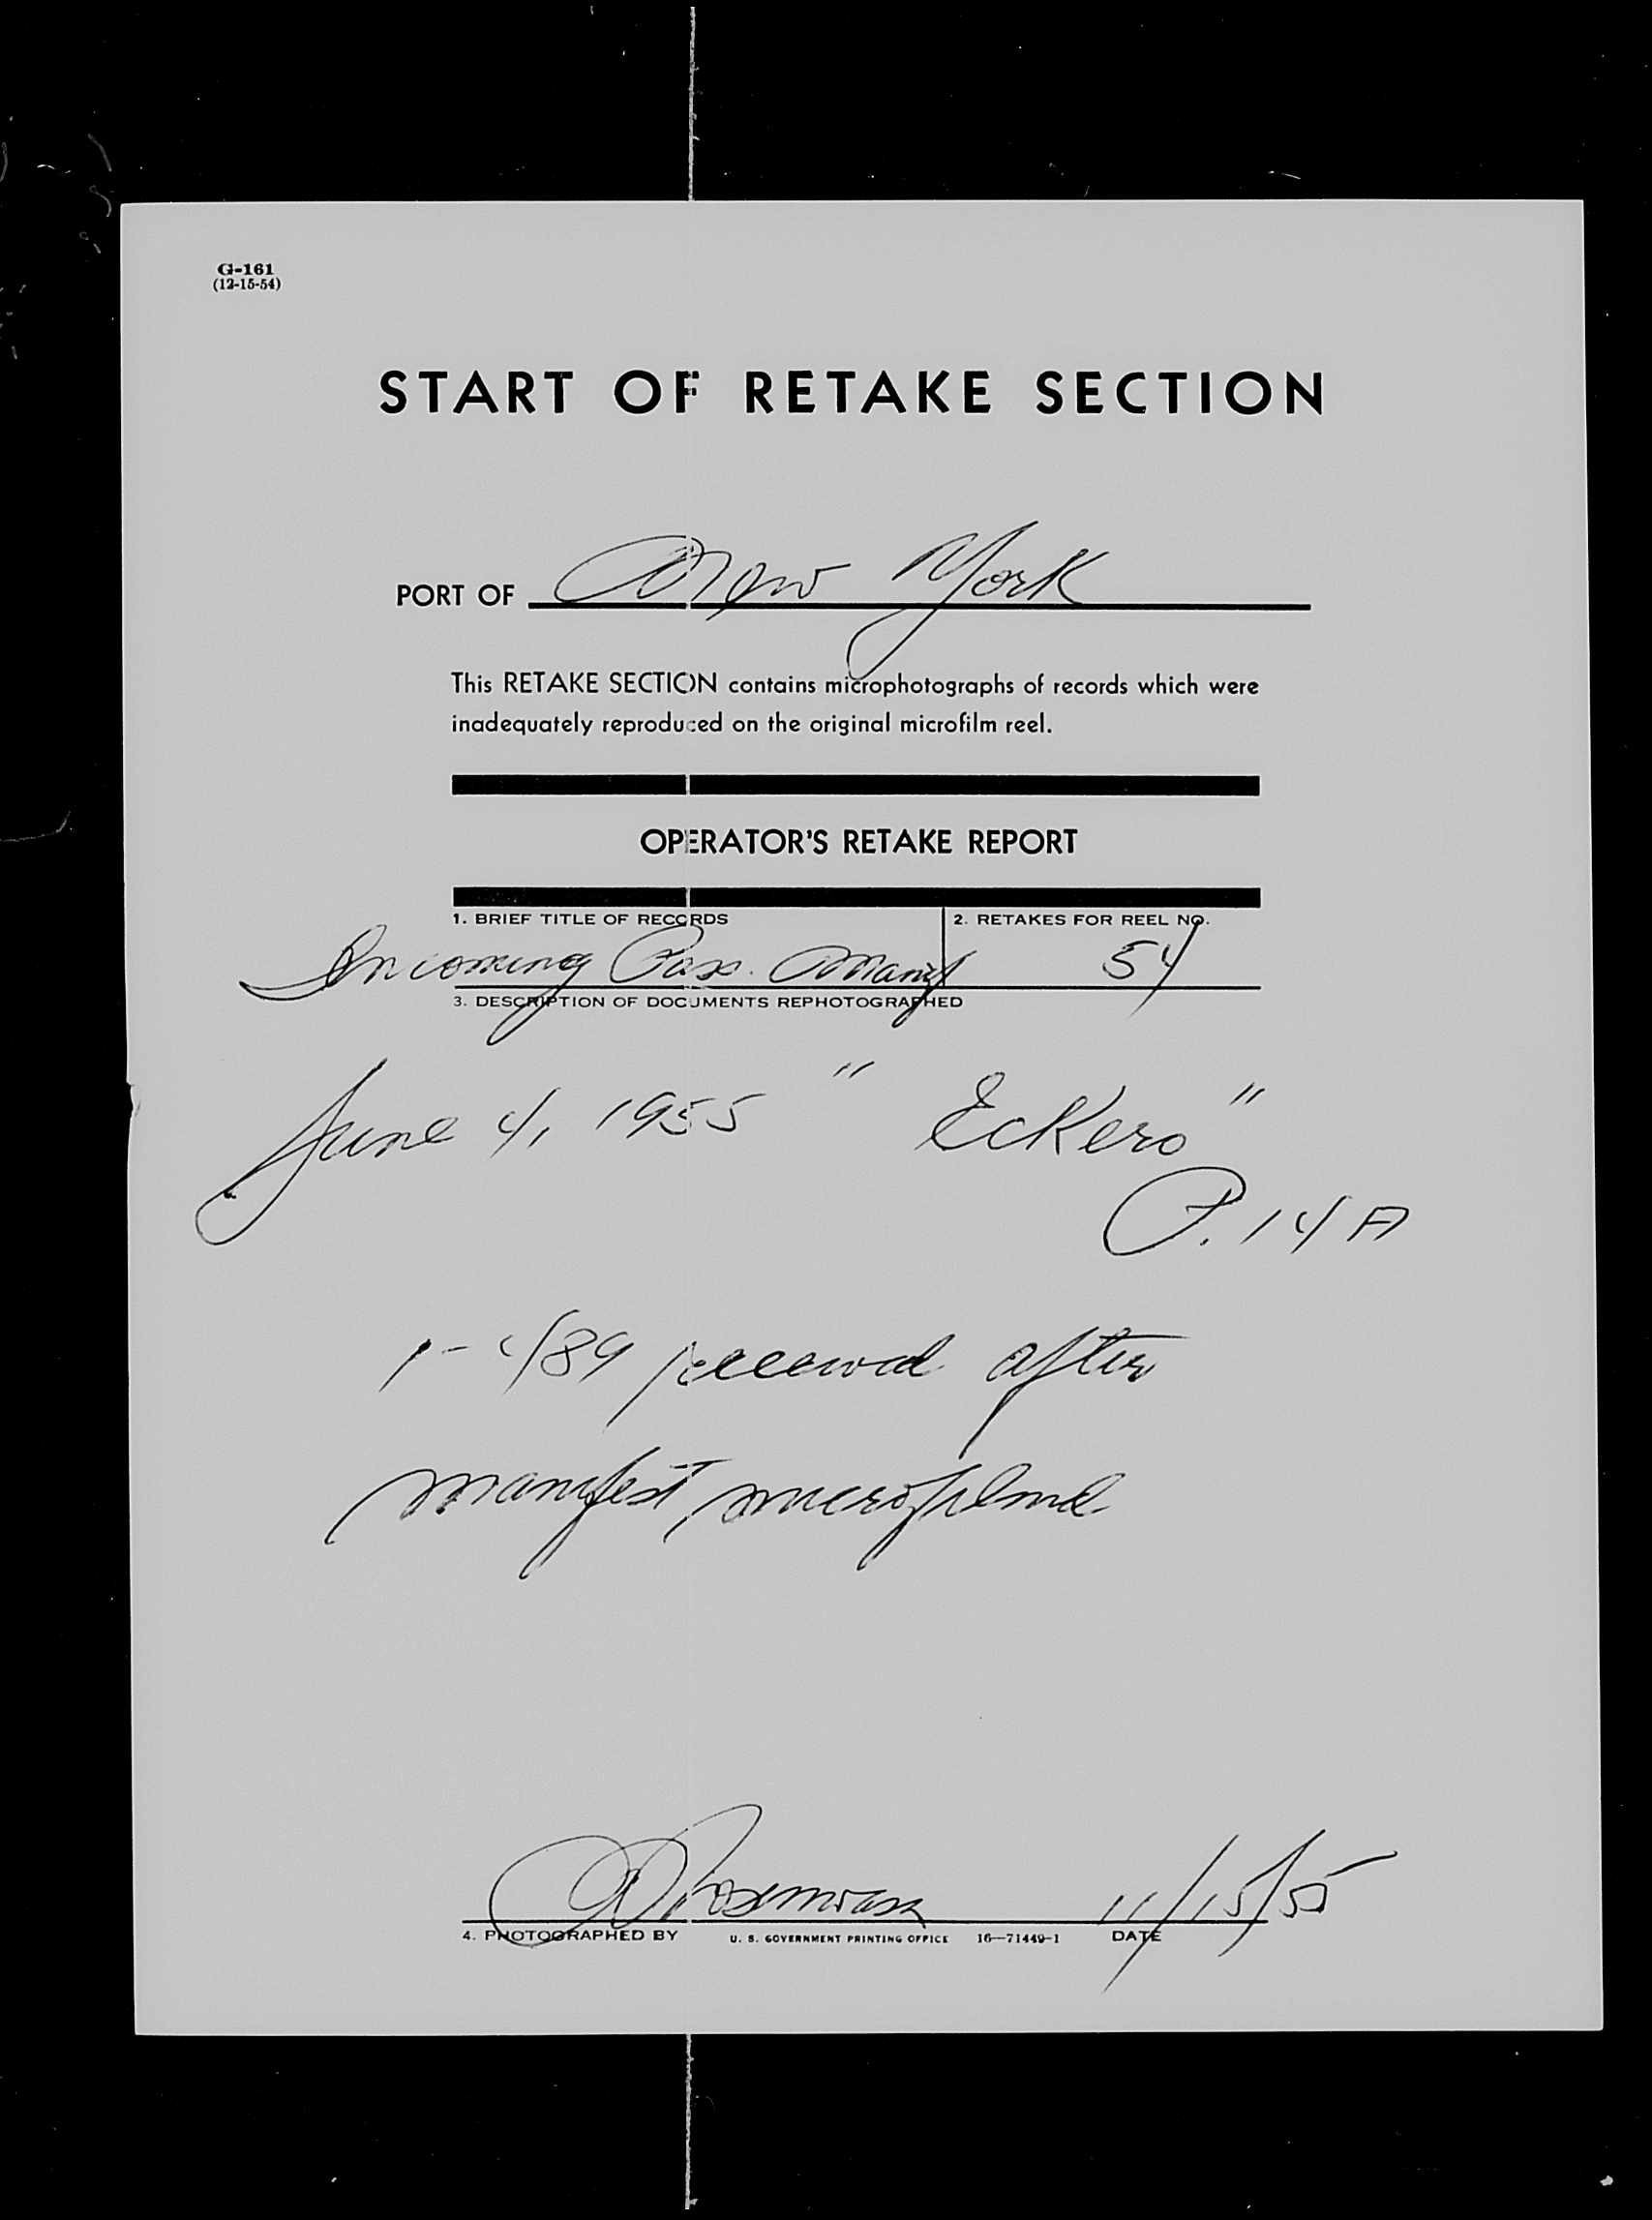 G-161
(12-15-54)
START OF RETAKE SECTION
PORT OF New York
This RETAKE SECTION contains microphotographs of records which were
inadequately reproduced on the original microfilm reel.
OPERATOR'S RETAKE REPORT
1. BRIEF TITLE OF RECORDS 2. RETAKES FOR REEL NO.
Incoming Pass. Manif 54
3. DESCRIPTION OF DOCUMENTS REPHOTOGRAPHED
June 4, 1955 " Eckero "
P. 14A
1-489 received after
manifest microfilmd
11/15/55
4. PHOTOGRAPHED BY U. S. GOVERNMENT PRINTING OFFICE 16—71449-1 DATE